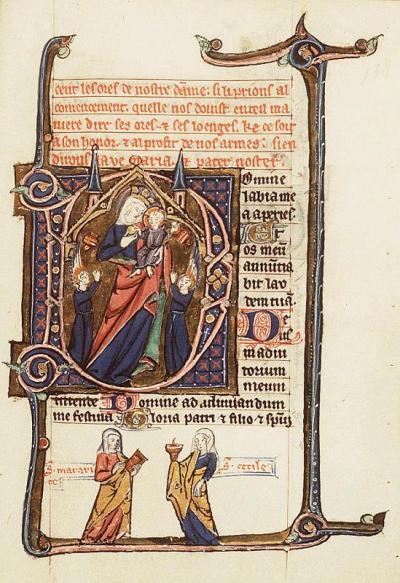 cent les ores de nostre dame. si li prions al
comencement. quelle nos doinst en teil ma
niere dire ses ores. & ses loenges. ke ce soit
a son honor. & al profit de nos armes. si en
dirons .i. ave maria. & pater noster.
Domine
labia me
a aperies.
Et
os meū
annūtia
bit lau
dem tuā.
De
us
in adiu
torium
meum
intende Domine ad adiuvandum
me festina Gloria patri & filio &
S. margari
S. cecile